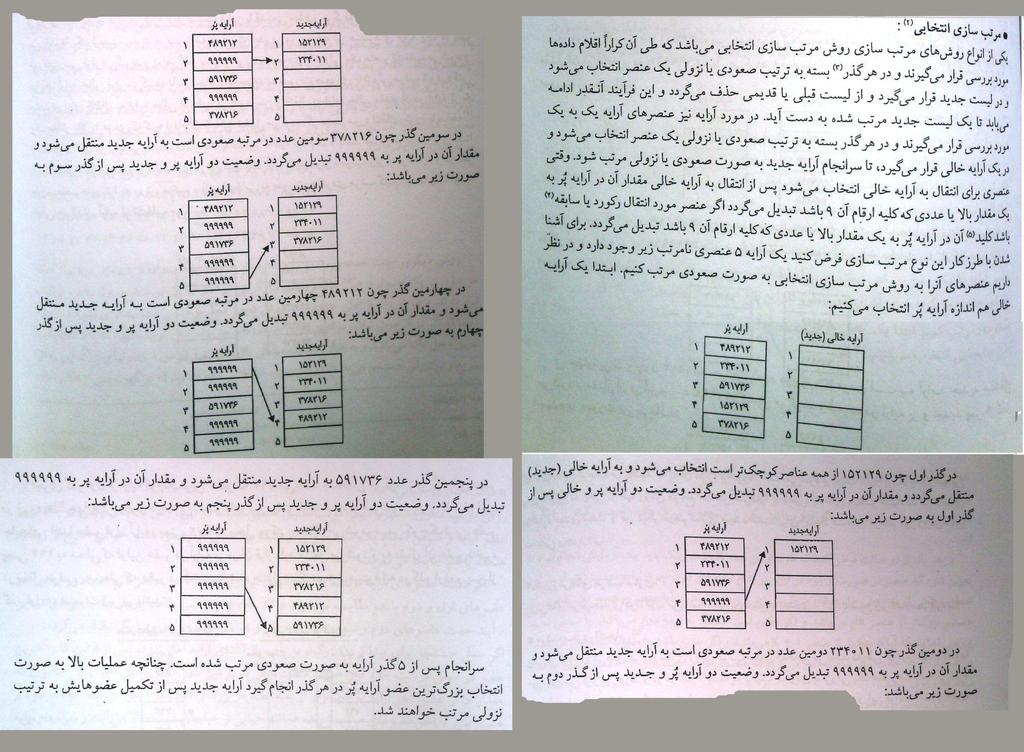 ● مرتب سازی انتخابی (۲) :
یکی از انواع روش‌های مرتب سازی روش مرتب سازی انتخابی می‌باشد که طی آن کراراً اقلام داده‌ها
مورد بررسی قرار می‌گیرند و در هر گذر (۳) بسته به ترتیب صعودی یا نزولی یک عنصر انتخاب می‌شود
و در لیست جدید قرار می‌گیرد و از لیست قبلی یا قدیمی حذف می‌گردد و این فرآیند آنقدر ادامه
می‌یابد تا یک لیست جدید مرتب شده به دست آید. در مورد آرایه نیز عنصرهای آرایه یک به یک
مورد بررسی قرار می‌گیرند و در هر گذر بسته به ترتیب صعودی یا نزولی یک عنصر انتخاب می‌شود و
در یک آرایه خالی قرار می‌گیرد، تا سرانجام آرایه جدید به صورت صعودی یا نزولی مرتب شود. وقتی
عنصری برای انتقال به آرایه خالی انتخاب می‌شود پس از انتقال به آرایه خالی مقدار آن در آرایه پُر به
یک مقدار بالا یا عددی که کلیه ارقام آن ۹ باشد تبدیل می‌گردد اگر عنصر مورد انتقال رکورد یا سابقه (۴)
باشد کلید (۵) آن در آرایه پُر به یک مقدار بالا یا عددی که کلیه ارقام آن ۹ باشد تبدیل می‌گردد. برای آشنا
شدن با طرز کار این نوع مرتب سازی فرض کنید یک آرایه ۵ عنصری نامرتب زیر وجود دارد و در نظر
داریم عنصرهای آنرا به روش مرتب سازی انتخابی به صورت صعودی مرتب کنیم. ابتدا یک آرایه
خالی هم اندازه آرایه پُر انتخاب می‌کنیم:
آرایه پُر آرایه خالی (جدید)
۱ ۴۸۹۲۱۲ ۱
۲ ۲۳۴۰۱۱ ۲
۳ ۵۹۱۷۳۶ ۳
۴ ۱۵۲۱۲۹ ۴
۵ ۳۷۸۲۱۶ ۵
در گذر اول چون ۱۵۲۱۲۹ از همه عناصر کوچک‌تر است انتخاب می‌شود و به آرایه خالی (جدید)
منتقل می‌گردد و مقدار آن در آرایه پر به ۹۹۹۹۹۹ تبدیل می‌گردد. وضعیت دو آرایه پر و خالی پس از
گذر اول به صورت زیر می‌باشد:
آرایه پُر آرایه جدید
۱ ۴۸۹۲۱۲ ۱ ۱۵۲۱۲۹
۲ ۲۳۴۰۱۱ ۲
۳ ۵۹۱۷۳۶ ۳
۴ ۹۹۹۹۹۹ ۴
۵ ۳۷۸۲۱۶ ۵
در دومین گذر چون ۲۳۴۰۱۱ دومین عدد در مرتبه صعودی است به آرایه جدید منتقل می‌شود و
مقدار آن در آرایه پر به ۹۹۹۹۹۹ تبدیل می‌گردد. وضعیت دو آرایه پُر و جدید پس از گذر دوم به
صورت زیر می‌باشد:
آرایه پُر آرایه جدید
۱ ۴۸۹۲۱۲ ۱ ۱۵۲۱۲۹
۲ ۹۹۹۹۹۹ ۲ ۲۳۴۰۱۱
۳ ۵۹۱۷۳۶ ۳
۴ ۹۹۹۹۹۹ ۴
۵ ۳۷۸۲۱۶ ۵
در سومین گذر چون ۳۷۸۲۱۶ سومین عدد در مرتبه صعودی است به آرایه جدید منتقل می‌شود و
مقدار آن در آرایه پر به ۹۹۹۹۹۹ تبدیل می‌گردد. وضعیت دو آرایه پر و جدید پس از گذر سوم به
صورت زیر می‌باشد:
آرایه پُر آرایه جدید
۱ ۴۸۹۲۱۲ ۱ ۱۵۲۱۲۹
۲ ۹۹۹۹۹۹ ۲ ۲۳۴۰۱۱
۳ ۵۹۱۷۳۶ ۳ ۳۷۸۲۱۶
۴ ۹۹۹۹۹۹ ۴
۵ ۹۹۹۹۹۹ ۵
در چهارمین گذر چون ۴۸۹۲۱۲ چهارمین عدد در مرتبه صعودی است به آرایه جدید منتقل
می‌شود و مقدار آن در آرایه پر به ۹۹۹۹۹۹ تبدیل می‌گردد. وضعیت دو آرایه پر و جدید پس از گذر
چهارم به صورت زیر می‌باشد:
آرایه پُر آرایه جدید
۱ ۹۹۹۹۹۹ ۱ ۱۵۲۱۲۹
۲ ۹۹۹۹۹۹ ۲ ۲۳۴۰۱۱
۳ ۵۹۱۷۳۶ ۳ ۳۷۸۲۱۶
۴ ۹۹۹۹۹۹ ۴ ۴۸۹۲۱۲
۵ ۹۹۹۹۹۹ ۵
در پنجمین گذر عدد ۵۹۱۷۳۶ به آرایه جدید منتقل می‌شود و مقدار آن در آرایه پر به ۹۹۹۹۹۹
تبدیل می‌گردد. وضعیت دو آرایه پر و جدید پس از گذر پنجم به صورت زیر می‌باشد:
آرایه پُر آرایه جدید
۱ ۹۹۹۹۹۹ ۱ ۱۵۲۱۲۹
۲ ۹۹۹۹۹۹ ۲ ۲۳۴۰۱۱
۳ ۹۹۹۹۹۹ ۳ ۳۷۸۲۱۶
۴ ۹۹۹۹۹۹ ۴ ۴۸۹۲۱۲
۵ ۹۹۹۹۹۹ ۵ ۵۹۱۷۳۶
سرانجام پس از ۵ گذر آرایه به صورت صعودی مرتب شده است. چنانچه عملیات بالا به صورت
انتخاب بزرگ‌ترین عضو آرایه پُر در هر گذر انجام گیرد آرایه جدید پس از تکمیل عضوهایش به ترتیب
نزولی مرتب خواهند شد.